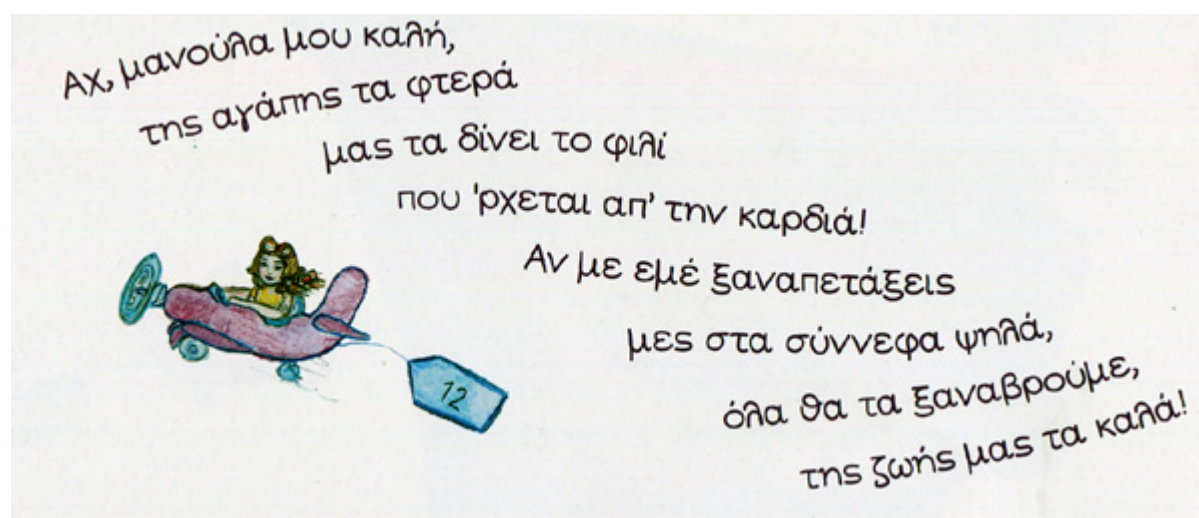 Αχ, μανούλα μου καλή,
της αγάπης τα φτερά
μας τα δίνει το φιλί
που 'ρχεται απ' την καρδιά!
Αν με εμέ ξαναπετάξεις
μες στα σύννεφα ψηλά,
όλα θα τα ξαναβρούμε,
της ζωής μας τα καλά!
12